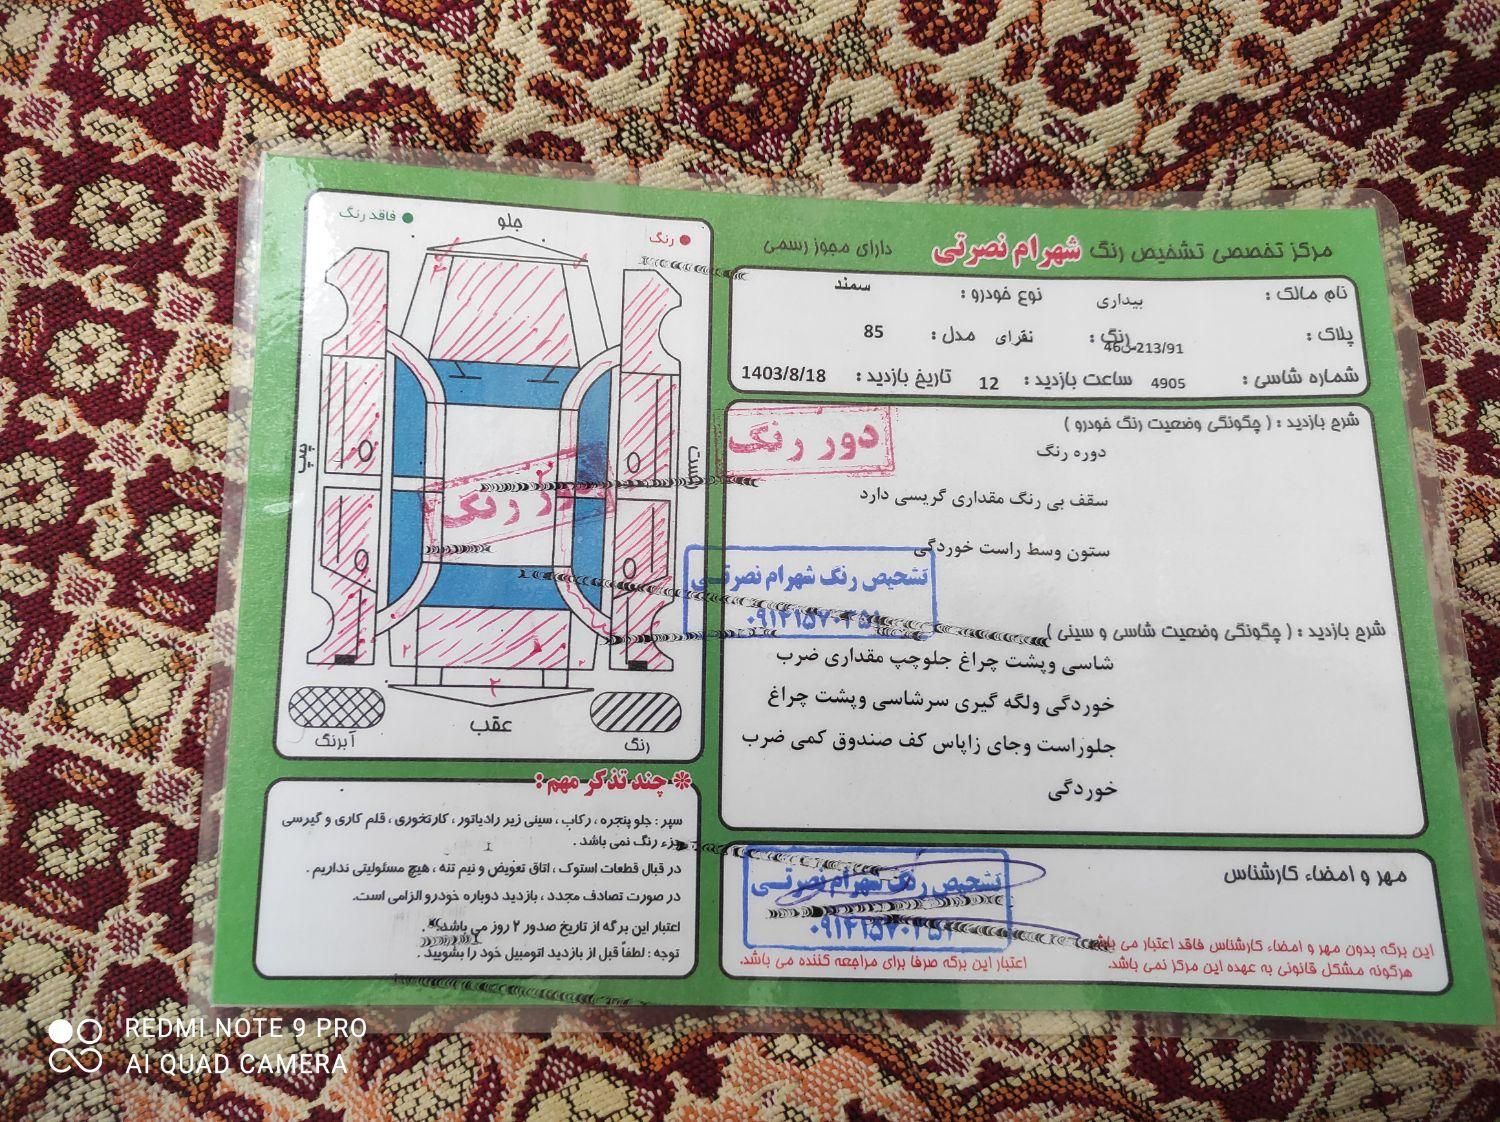 مرکز تخصصی تشخیص رنگ شهرام نصرتی دارای مجوز رسمی
نام مالک : بیداری نوع خودرو : سمند
پلاک : 213/91 46 رنگ : نقرای مدل : 85
شماره شاسی : 4905 ساعت بازدید : 12 تاریخ بازدید : 1403/8/18
شرح بازدید : ( چگونگی وضعیت رنگ خودرو )
دور رنگ
دوره رنگ
سقف بی رنگ مقداری گریسی دارد
ستون وسط راست خوردگی
تشخیص رنگ شهرام نصرتی
شرح بازدید : ( چگونگی وضعیت شاسی و سینی )
شاسی وپشت چراغ جلوچپ مقداری ضرب
خوردگی ولگه گیری سرشاسی وپشت چراغ
جلوراست وجای زاپاس کف صندوق کمی ضرب
خوردگی
مهر و امضاء کارشناس
تشخیص رنگ شهرام نصرتی
این برگه بدون مهر و امضاء کارشناس فاقد اعتبار می باشد
هرگونه مشکل قانونی به عهده این مرکز نمی باشد.
اعتبار این برگه صرفا برای مراجعه کننده می باشد.
فاقد رنگ
رنگ
جلو
چپ
راست
دور رنگ
۲
۲
۲
عقب
آبرنگ
رنگ
چند تذکر مهم :
سپر : جلو پنجره ، رکاب ، سینی زیر رادیاتور ، کارتخوری ، قلم کاری و گیرسی
جزء رنگ نمی باشد .
در قبال قطعات استوک ، اتاق تعویض و نیم تنه ، هیچ مسئولیتی نداریم .
در صورت تصادف مجدد ، بازدید دوباره خودرو الزامی است.
اعتبار این برگه از تاریخ صدور ۲ روز می باشد .
توجه : لطفاً قبل از بازدید اتومبیل خود را بشویید .
REDMI NOTE 9 PRO
AI QUAD CAMERA